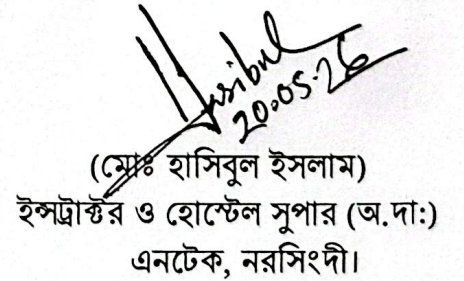 Hasibul
20.05.26
(মোঃ হাসিবুল ইসলাম)
ইন্সট্রাক্টর ও হোস্টেল সুপার (অ.দা:)
এনটেক, নরসিংদী।